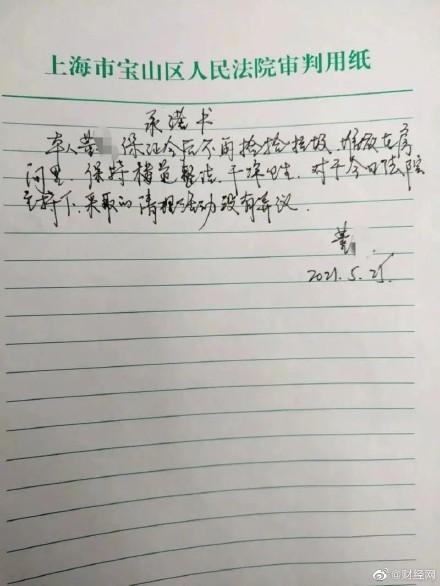 上海市宝山区人民法院审判用纸
承诺书
本人董 保证今后不再捡拾垃圾、堆放在房
间里，保持楼道整洁、干净卫生，对于今日法院
主持下，采取的清理活动没有异议。
董
2021.5.25.
@财经网